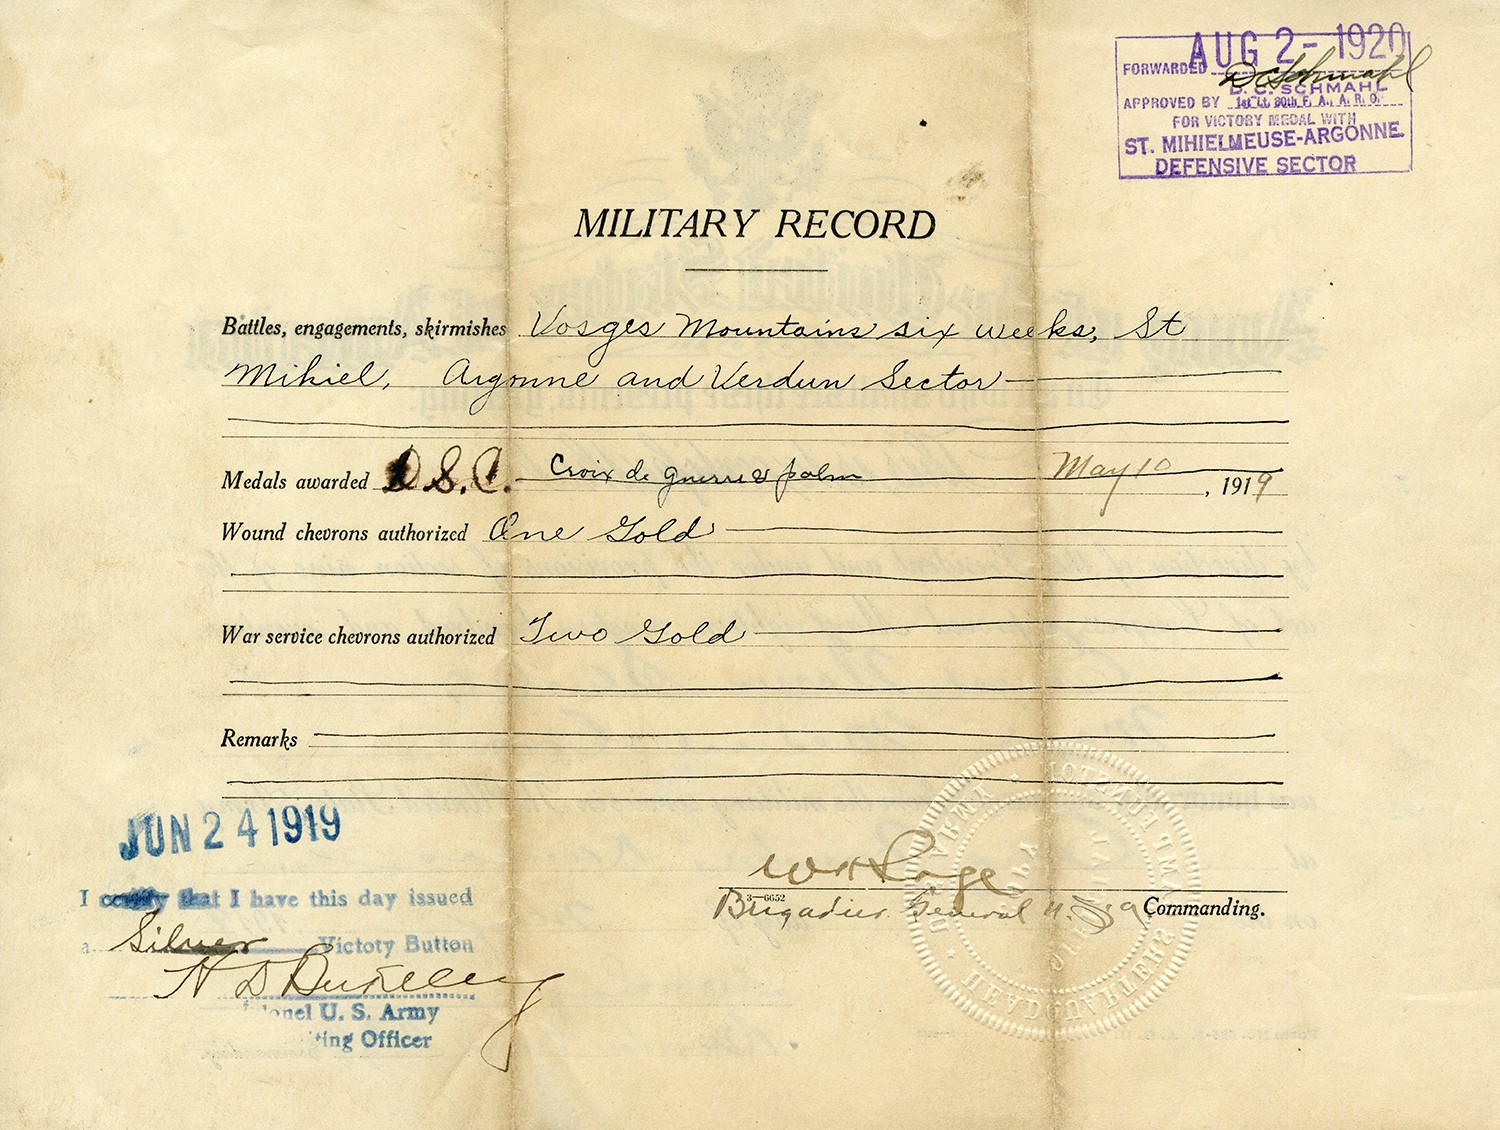 AUG 2 - 1920
FORWARDED D C Schmahl
D. C. SCHMAHL
APPROVED BY 1st Lt. 80th F. A., A. R. O.
FOR VICTORY MEDAL WITH
ST. MIHIELMEUSE-ARGONNE.
DEFENSIVE SECTOR
MILITARY RECORD
Battles, engagements, skirmishes Vosges Mountains six weeks, St
Mihiel, Argonne and Verdun Sector
Medals awarded D.S.C. Croix de guerre & palm May 10, 1919
Wound chevrons authorized One Gold
War service chevrons authorized Two Gold
Remarks
JUN 24 1919
I certify that I have this day issued
a Silver Victoty Button
H D
onel U. S. Army
ting Officer
W H Page
3—6652
Brigadier General U.S.A. Commanding.
CAMP FUNSTON
HEADQUARTERS